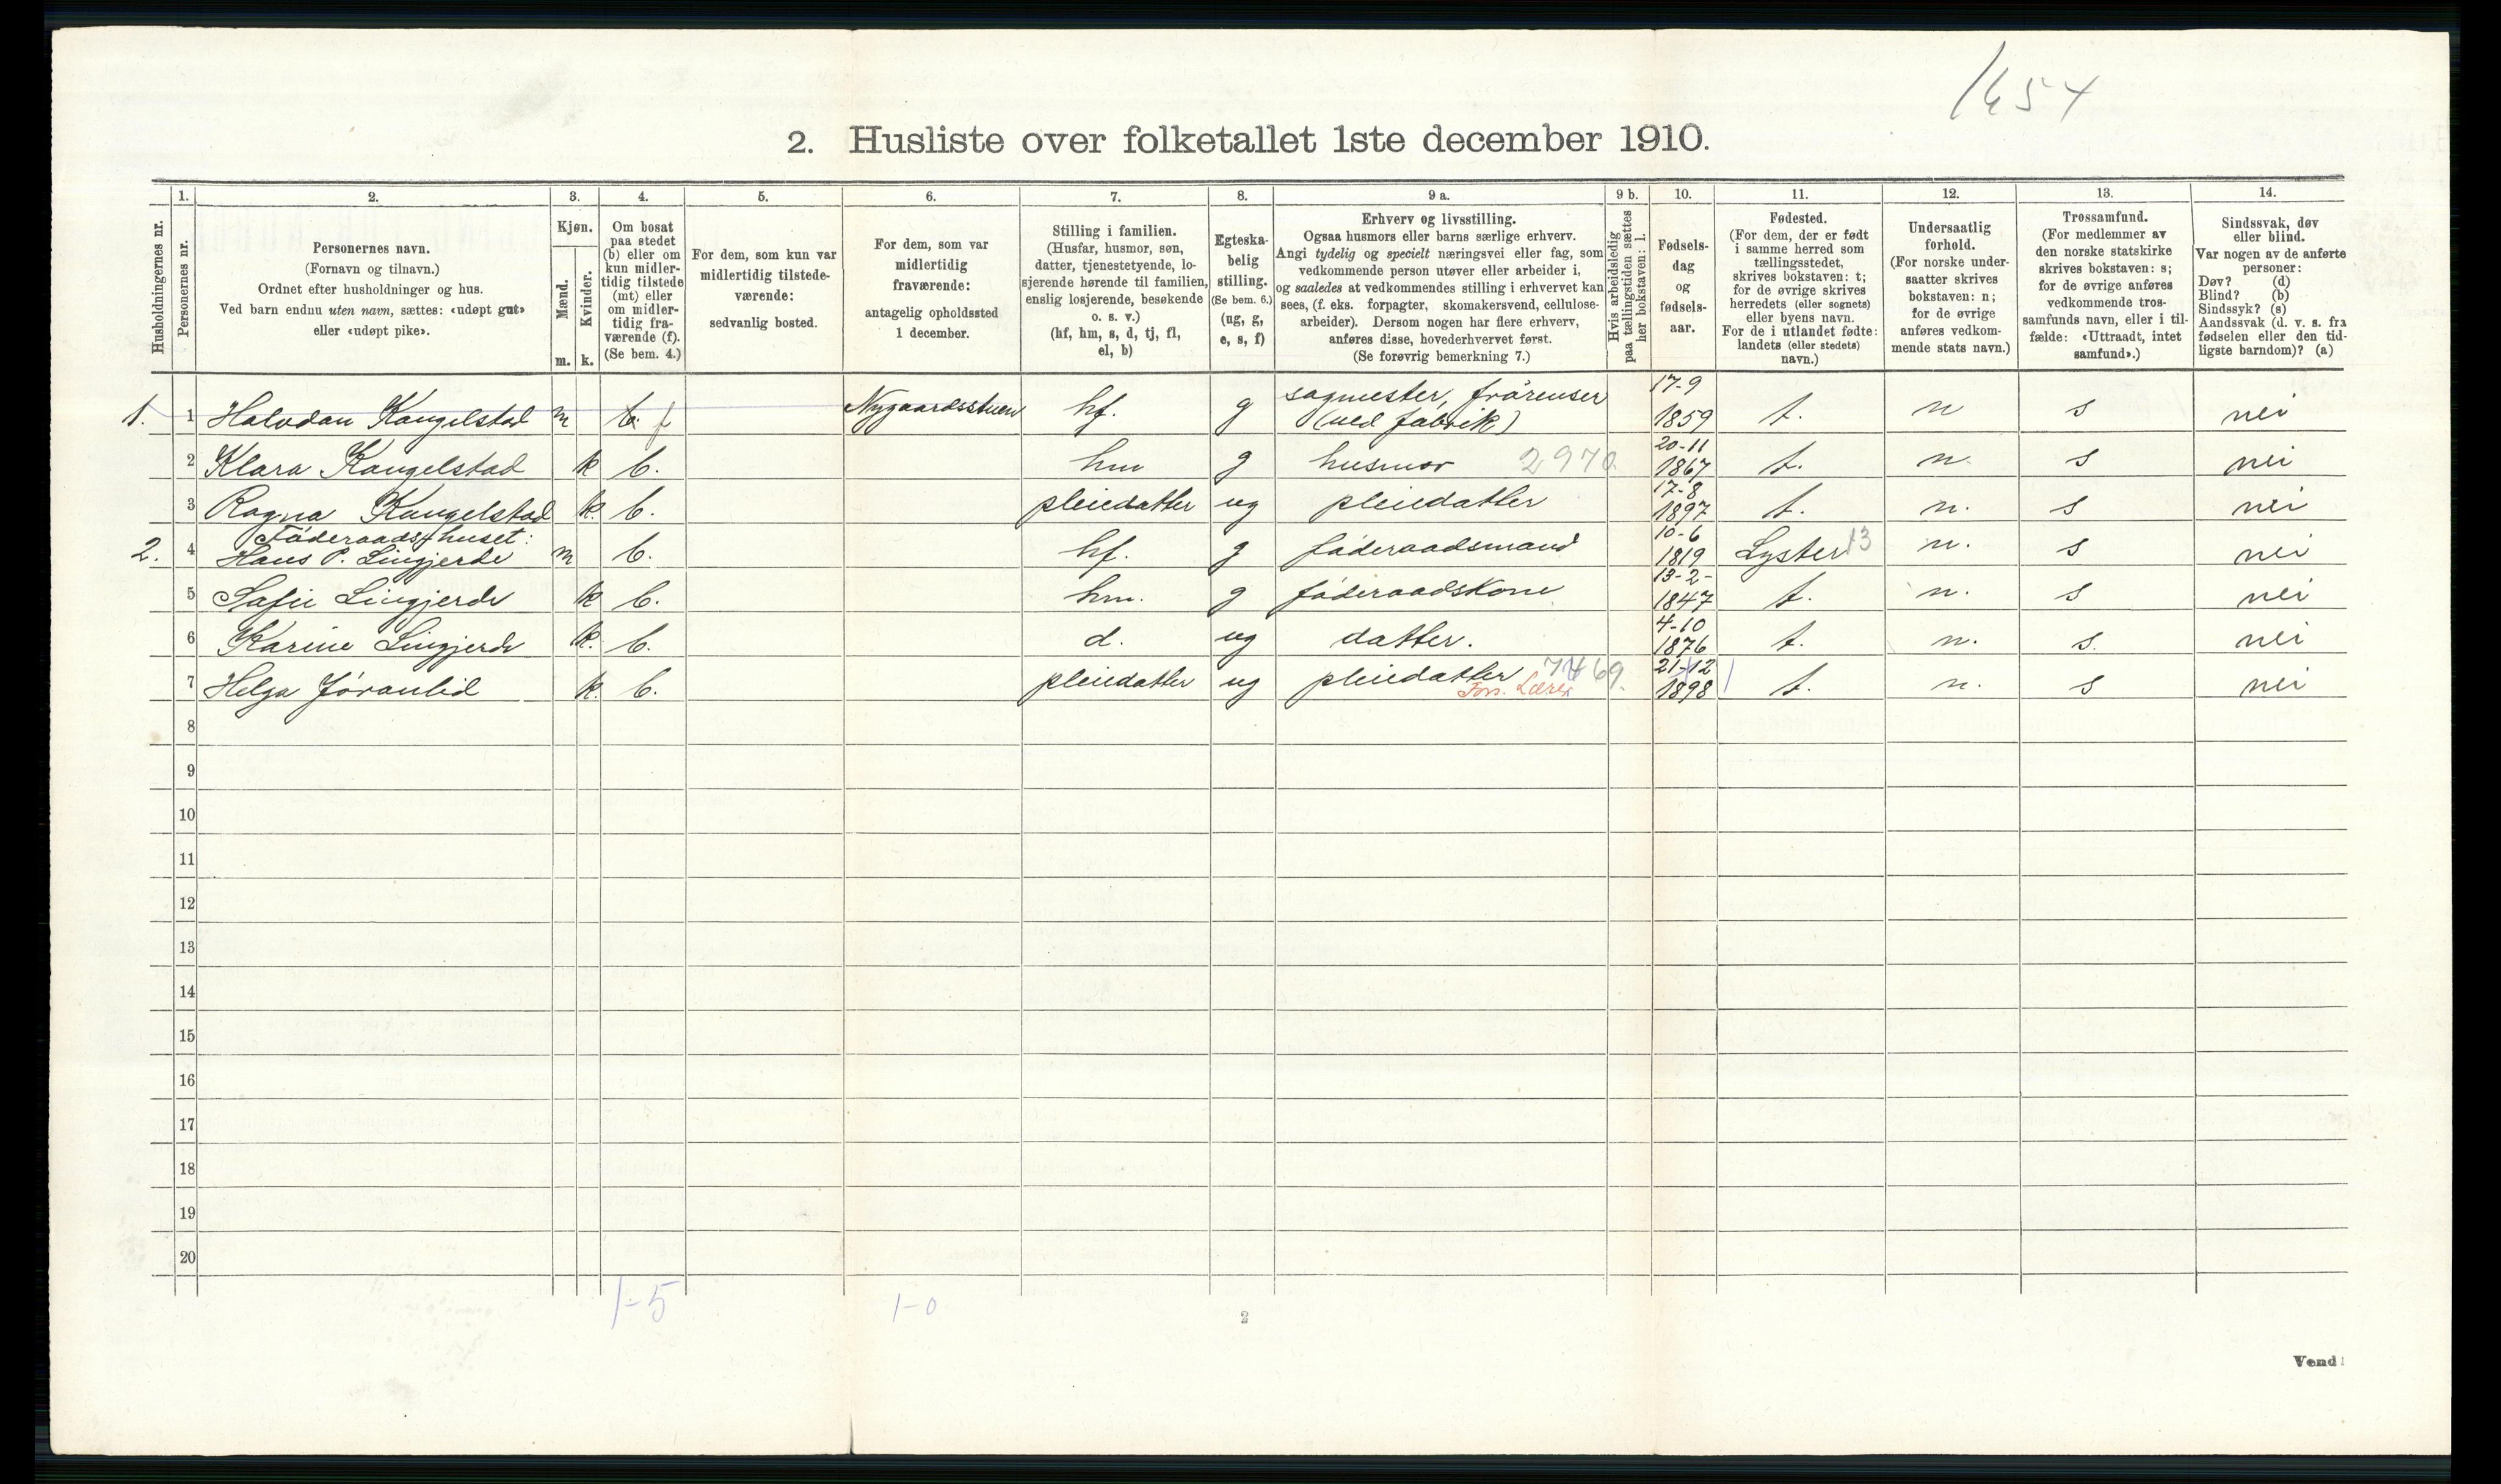 1654
2. Husliste over folketallet 1ste december 1910.
1. 2. 3. 4. 5. 6. 7. 8. 9 a. 9 b. 10. 11. 12. 13. 14.
Husholdningernes nr.
Personernes nr.
Personernes navn.
(Fornavn og tilnavn.)
Ordnet efter husholdninger og hus.
Ved barn endnu uten navn, sættes: «udøpt gut»
eller «udøpt pike».
Kjøn.
Mænd.
Kvinder.
m. k.
Om bosat
paa stedet
(b) eller om
kun midler-
tidig tilstede
(mt) eller
om midler-
tidig fra-
værende (f).
(Se bem. 4.)
For dem, som kun var
midlertidig tilstede-
værende:
sedvanlig bosted.
For dem, som var
midlertidig
fraværende:
antagelig opholdssted
1 december.
Stilling i familien.
(Husfar, husmor, søn,
datter, tjenestetyende, lo-
sjerende hørende til familien,
enslig losjerende, besøkende
o. s. v.)
(hf, hm, s, d, tj, fl,
el, b)
Egteska-
belig
stilling.
(Se bem. 6.)
(ug, g,
e, s, f)
Erhverv og livsstilling.
Ogsaa husmors eller barns særlige erhverv.
Angi tydelig og specielt næringsvei eller fag, som
vedkommende person utøver eller arbeider i,
og saaledes at vedkommendes stilling i erhvervet kan
sees, (f. eks. forpagter, skomakersvend, cellulose-
arbeider). Dersom nogen har flere erhverv,
anføres disse, hovederhvervet først.
(Se forøvrig bemerkning 7.)
Hvis arbeidsledig
paa tællingstiden sættes
her bokstaven: l.
Fødsels-
dag
og
fødsels-
aar.
Fødested.
(For dem, der er født
i samme herred som
tællingsstedet,
skrives bokstaven: t;
for de øvrige skrives
herredets (eller sognets)
eller byens navn.
For de i utlandet fødte:
landets (eller stedets)
navn.)
Undersaatlig
forhold.
(For norske under-
saatter skrives
bokstaven: n;
for de øvrige
anføres vedkom-
mende stats navn.)
Trossamfund.
(For medlemmer av
den norske statskirke
skrives bokstaven: s;
for de øvrige anføres
vedkommende tros-
samfunds navn, eller i til-
fælde: «Uttraadt, intet
samfund».)
Sindssvak, døv
eller blind.
Var nogen av de anførte
personer:
Døv? (d)
Blind? (b)
Sindssyk? (s)
Aandssvak (d. v. s. fra
fødselen eller den tid-
ligste barndom)? (a)
1. 1 Halvdan Kangelstad m b. f Nygaardsstuen hf. g sagmester, (ved fabrik) 17-9 1859 t. n s nei
2 Klara Kangelstad k b. hm g husmor 2970. 20-11 1867 t. n. s nei
3 Ragna Kangelstad k. b. pleiedatter ug pleiedatter 17-8 1897 t. n. s nei
Føderaadshuset:
2. 4 Hans P. Lingjerde m b. hf. g føderaadsmand 10-6 1819 Lyster 13 n. s nei
5 Safie Lingjerde k b. hm. g føderaadskone 13-2- 1847 t. n. s nei
6 Karine Lingjerde k. b. d. ug datter. 4-10 1876 t. n. s. nei
7 Helga Jøranlid k. b. pleiedatter ug pleiedatter 69. Fors. Lærer 21-12 1898 t. n. s nei
8
9
10
11
12
13
14
15
16
17
18
19
20
1-5 1-0
2
Vend!